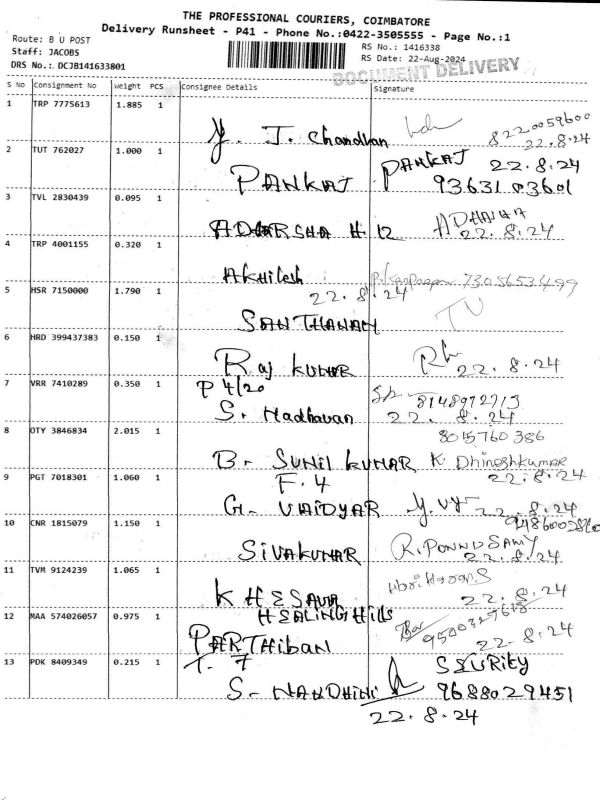 THE PROFESSIONAL COURIERS, COIMBATORE
Delivery Runsheet - P41 - Phone No.:0422-3505555 - Page No.:1
Route: B U POST
RS No.: 1416338
Staff: JACOBS
RS Date: 22-Aug-2024
DRS No.: DCJB141633801
DOCUMENT DELIVERY
S No Consignment No Weight PCS Consignee Details Signature
1 TRP 7775613 1.885 1
Y. J. Chandhan 8220059600
22.8.24
2 TUT 762027 1.000 1
PANKAJ PANKAJ 22.8.24
93631 03601
3 TVL 2830439 0.095 1
ADHARSHA H. 12
22.8.24
4 TRP 4001155 0.320 1
Akhilesh 7305653499
22.8.24
5 HSR 7150000 1.790 1
SANTHANAM
6 HRD 399437383 0.150 1
Raj KUMAR 22.8.24
7 VRR 7410289 0.350 1
P 4/20
S. Madhavan 8148972713
22.8.24
8 OTY 3846834 2.015 1
8015760386
B. SUNIL KUMAR K. Dhineshkumar
22.8.24
9 PGT 7018301 1.060 1
F. 4
G. VAIDYAR 22.8.24
10 CNR 1815079 1.150 1
SIVAKUMAR R. PONNUSAMY
22.8.24
11 TVM 9124239 1.065 1
KHESAVA 22.8.24
12 MAA 574026057 0.975 1
HEALING Hills
PARTHIBAN 22.8.24
13 PDK 8409349 0.215 1
T. 7
S. NANDHINI 9688029451
22.8.24